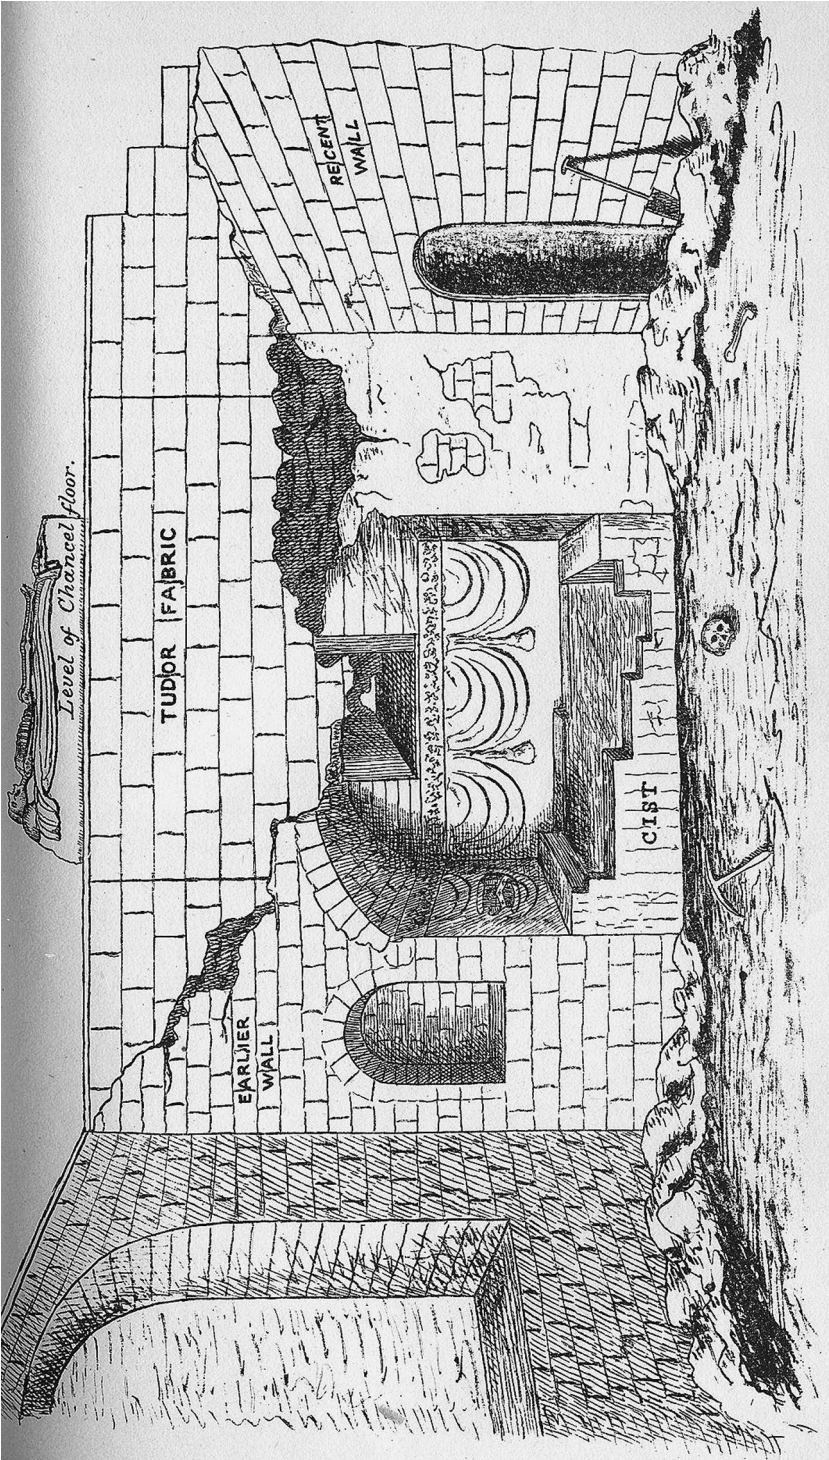 Level of Chancel floor.
TUDOR FABRIC
EARLIER
WALL
RECENT
WALL
CIST